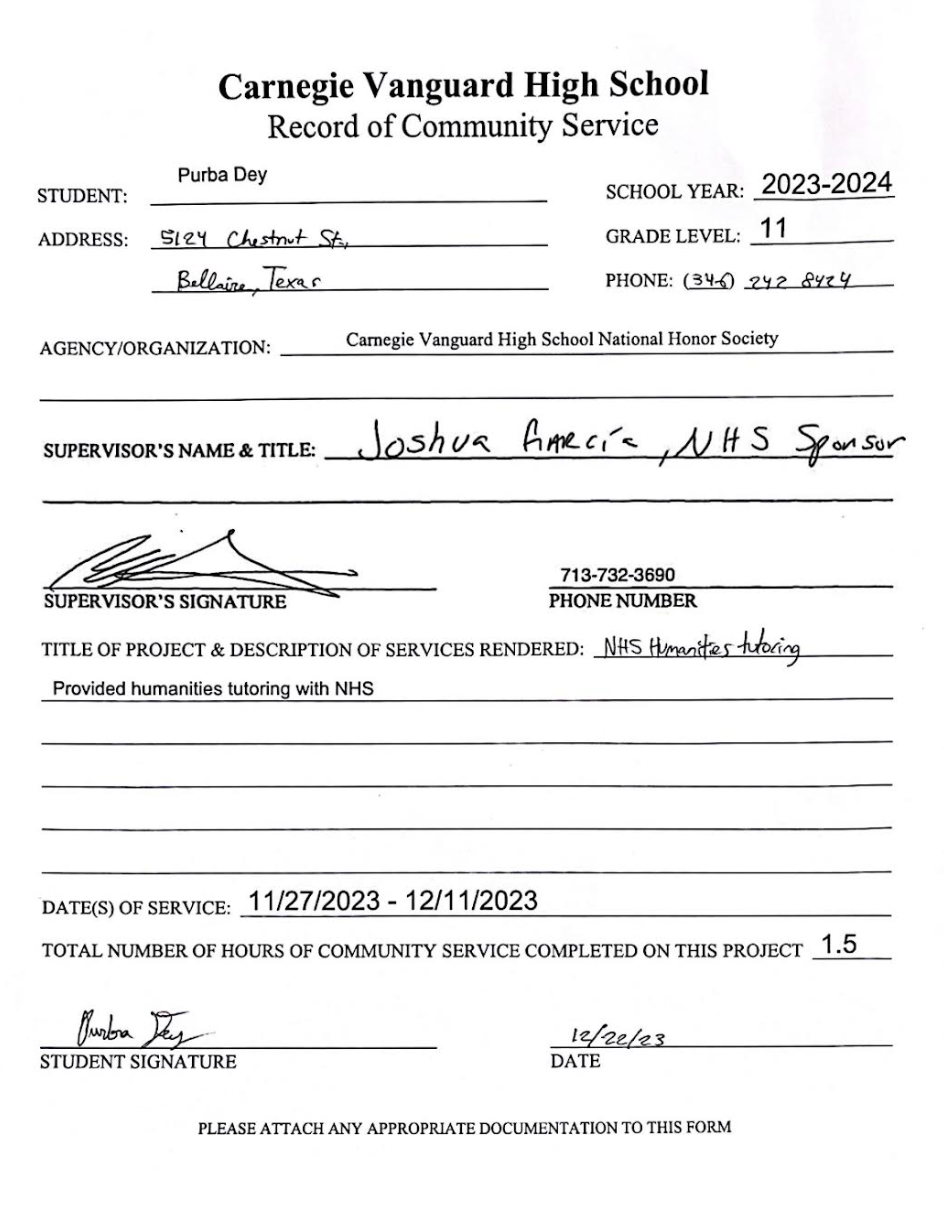 Carnegie Vanguard High School
Record of Community Service
STUDENT: Purba Dey
SCHOOL YEAR: 2023-2024
ADDRESS: 5124 Chestnut St,
GRADE LEVEL: 11
Bellaire, Texas
PHONE: (346) 242 8424
AGENCY/ORGANIZATION: Carnegie Vanguard High School National Honor Society
SUPERVISOR'S NAME & TITLE: Joshua García, NHS Sponsor
713-732-3690
SUPERVISOR'S SIGNATURE PHONE NUMBER
TITLE OF PROJECT & DESCRIPTION OF SERVICES RENDERED: NHS Humanities tutoring
Provided humanities tutoring with NHS
DATE(S) OF SERVICE: 11/27/2023 - 12/11/2023
TOTAL NUMBER OF HOURS OF COMMUNITY SERVICE COMPLETED ON THIS PROJECT 1.5
Purba Dey 12/22/23
STUDENT SIGNATURE DATE
PLEASE ATTACH ANY APPROPRIATE DOCUMENTATION TO THIS FORM